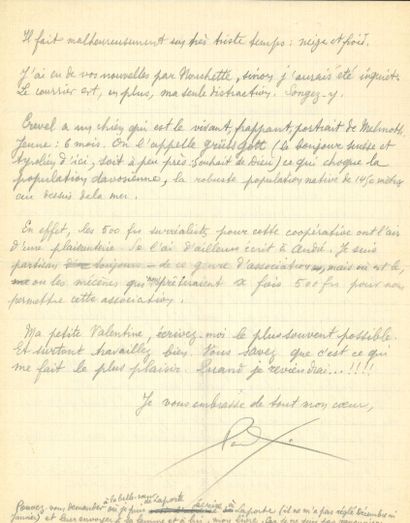 Il fait malheureusement un très triste temps : neige et froid.
J'ai eu de vos nouvelles par Nouchette, sinon j'aurais été inquiet.
Le courrier est, en plus, ma seule distraction. Songez-y.
Crevel a un chien qui est le vivant, frappant, portrait de Melmoth
jeune : 6 mois. On l'appelle grüssgott (le bonjour suisse et
tyrolien d'ici, soit à peu près : Souhait de Dieu) ce qui choque la
population davosienne, la robuste population native de 1450 mètres
au dessus de la mer.
En effet, les 500 frs surréalistes pour cette coopérative ont l'air
d'une plaisanterie. Je l'ai d'ailleurs écrit à André. Je suis
partisan de ce genre d'association, mais où est le,
ou les mécènes qui x fois 500 frs pour nous
permettre cette association.
Ma petite Valentine, écrivez-moi le plus souvent possible.
Et surtout travaillez bien. Vous savez que c'est ce qui
me fait le plus plaisir. Quand je reviendrai...!!!!
Je vous embrasse de tout mon cœur,
Paul
à la belle-sœur de Laporte
Pouvez-vous demander où je puis écrire à Laporte (il ne m'a pas réglé Décembre ni
Janvier) et leur